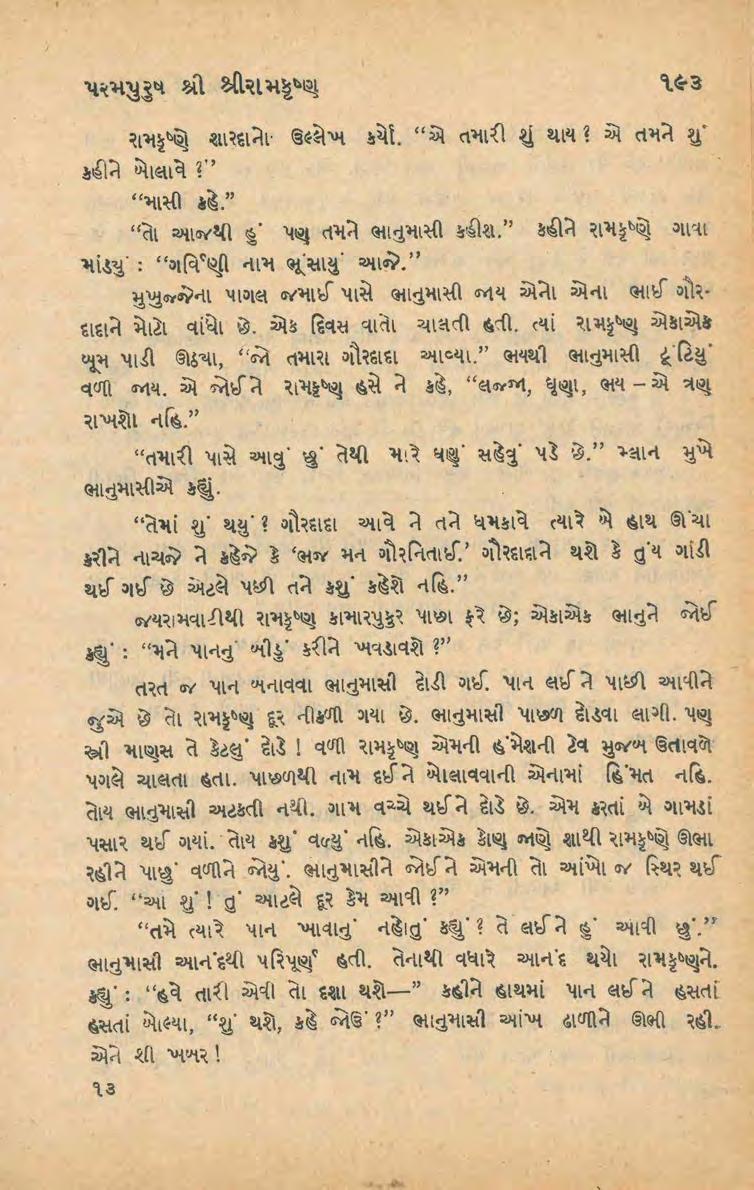 પરમપુરુષ શ્રી શ્રીરામકૃષ્ણ ૧૯૩
રામકૃષ્ણે શારદાનો ઉલ્લેખ કર્યો. “એ તમારી શું થાય ? એ તમને શું
કહીને બોલાવે ?”
“માસી કહે.”
“તો આજથી હું પણ તમને ભાનુમાસી કહીશ.” કહીને રામકૃષ્ણે ગાવા
માંડ્યું : “ગર્વિણી નામ ભૂંસાયું આજે.”
મુખુજ્જેના પાગલ જમાઈ પાસે ભાનુમાસી જાય એનો એના ભાઈ ગૌર-
દાદાને મોટો વાંધો છે. એક દિવસ વાતો ચાલતી હતી. ત્યાં રામકૃષ્ણ એકાએક
બૂમ પાડી ઊઠ્યા, “જો તમારા ગૌરદાદા આવ્યા.” ભયથી ભાનુમાસી ટૂંટિયું
વળી જાય. એ જોઈને રામકૃષ્ણ હસે ને કહે, “લજ્જા, ઘૃણા, ભય – એ ત્રણ
રાખશો નહિ.”
“તમારી પાસે આવું છું તેથી મારે ઘણું સહેવું પડે છે.” મ્લાન મુખે
ભાનુમાસીએ કહ્યું.
“તેમાં શું થયું ? ગૌરદાદા આવે ને તને ધમકાવે ત્યારે બે હાથ ઊંચા
કરીને નાચજે ને કહેજે કે ‘ભજ મન ગૌરનિતાઈ.’ ગૌરદાદાને થશે કે તુંય ગાંડી
થઈ ગઈ છે એટલે પછી તને કશું કહેશે નહિ.”
જયરામવાટીથી રામકૃષ્ણ કામારપુકુર પાછા ફરે છે; એકાએક ભાનુને જોઈ
કહ્યું : “મને પાનનું બીડું કરીને ખવડાવશે ?”
તરત જ પાન બનાવવા ભાનુમાસી દોડી ગઈ. પાન લઈને પાછી આવીને
જુએ છે તો રામકૃષ્ણ દૂર નીકળી ગયા છે. ભાનુમાસી પાછળ દોડવા લાગી. પણ
સ્ત્રી માણસ તે કેટલું દોડે ! વળી રામકૃષ્ણ એમની હંમેશની ટેવ મુજબ ઉતાવળે
પગલે ચાલતા હતા. પાછળથી નામ દઈને બોલાવવાની એનામાં હિંમત નહિ.
તોય ભાનુમાસી અટકતી નથી. ગામ વચ્ચે થઈને દોડે છે. એમ કરતાં બે ગામડાં
પસાર થઈ ગયાં. તોય કશું વળ્યું નહિ. એકાએક કોણ જાણે શાથી રામકૃષ્ણે ઊભા
રહીને પાછું વળીને જોયું. ભાનુમાસીને જોઈને એમની તો આંખો જ સ્થિર થઈ
ગઈ. “આ શું ! તું આટલે દૂર કેમ આવી ?”
“તમે ત્યારે પાન ખાવાનું નહોતું કહ્યું ? તે લઈને હું આવી છું.”
ભાનુમાસી આનંદથી પરિપૂર્ણ હતી. તેનાથી વધારે આનંદ થયો રામકૃષ્ણને.
કહ્યું : “હવે તારી એવી તો દશા થશે—” કહીને હાથમાં પાન લઈને હસતાં
હસતાં બોલ્યા, “શું થશે, કહે જોઉં ?” ભાનુમાસી આંખ ઢાળીને ઊભી રહી.
એને શી ખબર !
૧૩